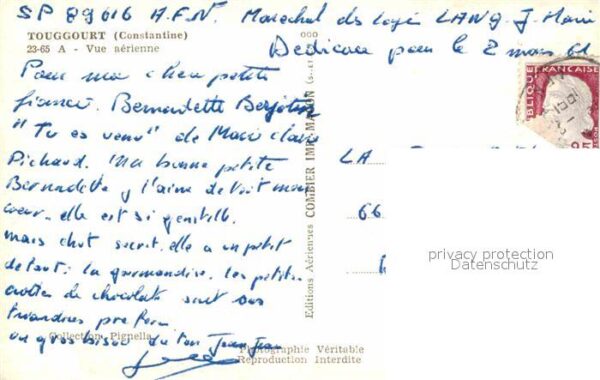 SP 89016 A.F.N. Marechal des logis LANG J. Marie
TOUGGOURT (Constantine)
23-65 A - Vue aérienne
Dedicace pour le 2 mars 61
Pour ma chere petite
fiancée Bernadette
"Tu es venu" de Marie Claire
Pichaud. Ma bonne petite
Bernadette, j l'aime de tout mon
coeur. elle est si gentille.
mais chut secret. elle a un petit
defaut: la gourmandise. les petites
crottes de chocolats sont ses
friandises
un gros bisou de ton Jean
Collection Pignella
Editions Aériennes COMBIER IMP. MACON
Photographie Véritable
Reproduction Interdite
FRANCAISE
LA
66
privacy protection
Datenschutz